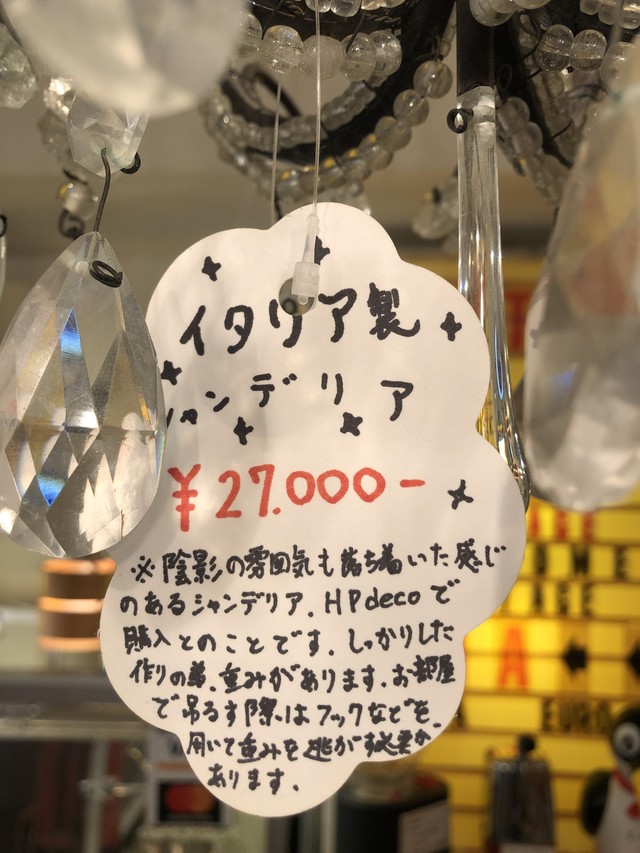 イタリア製
シャンデリア
¥27.000-
※陰影の雰囲気も落ち着いた感じ
のあるシャンデリア.HPdecoで
購入とのことです.しっかりした
作りの為.重みがあります.お部屋
で吊るす際はフックなどを.
用いて重みを逃がす必要が
あります.
A
EURO